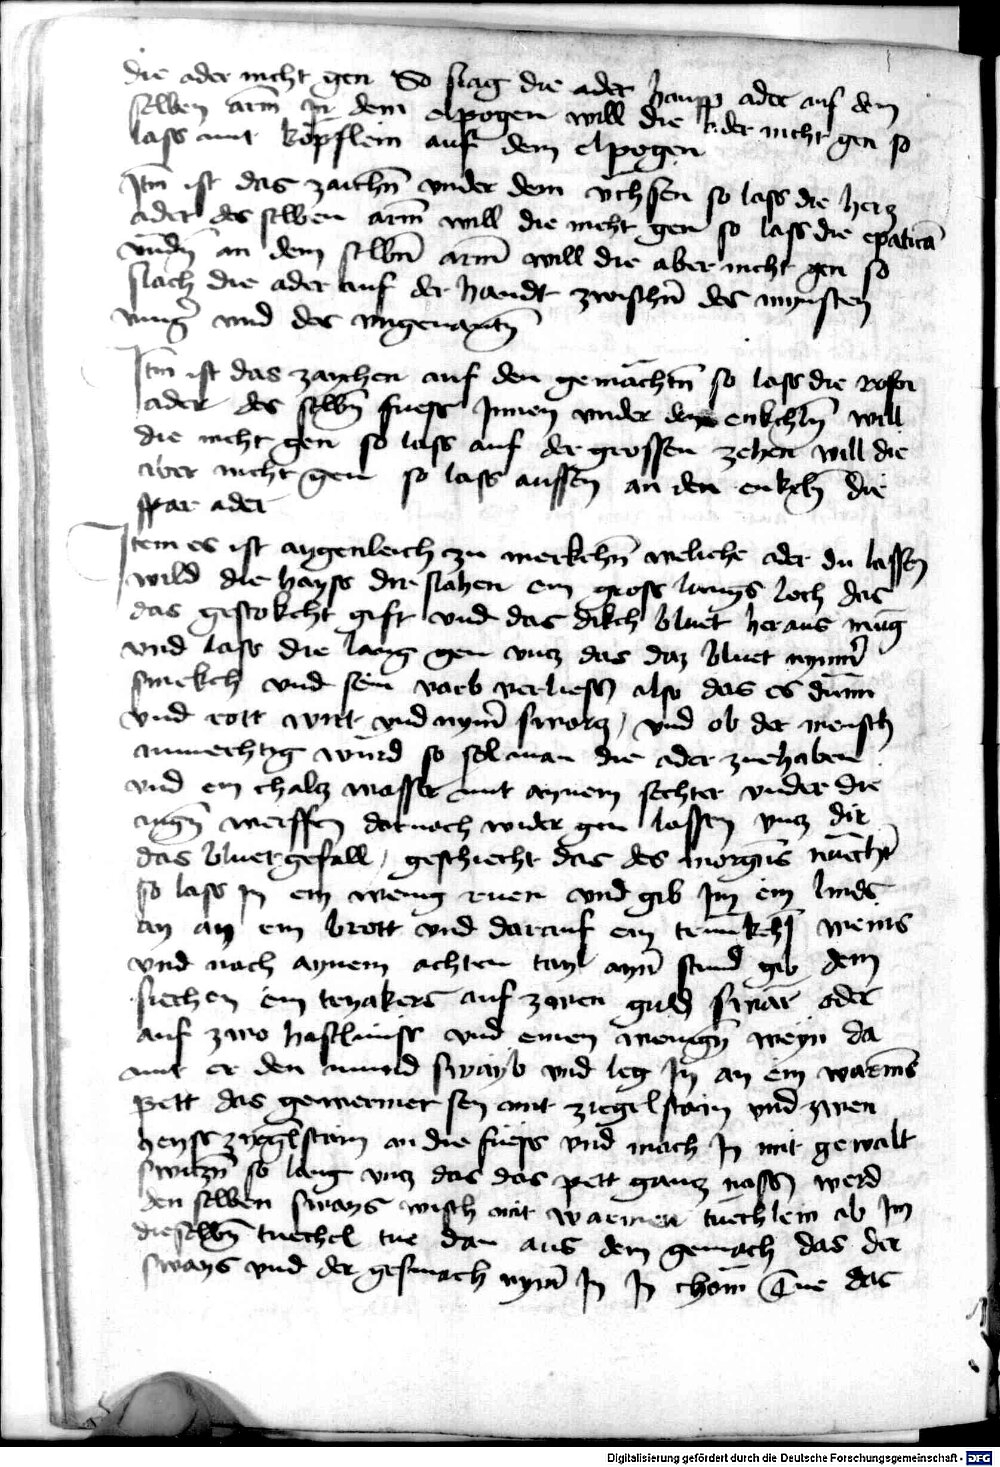 die ader nicht gen So slag die ader haupp ader auf dem
selben arm In dem elpogen will die ader nicht gen so
lass mit kopflein auf dem elpogen
Itm ist das zaichn under dem uchsen so lass die hertz
ader des selben arm will die nicht gen so lass die epatica
undn an dem selbn arm will die aber nicht gen so
slach die ader auf der handt zwischn des mynsten
vingr und des ungenantn
Itm ist das zaychen auf den gemachtn so lass die rosen
ader des selbn fuess Innen under dem enkchln will
die nicht gen so lass auf der grossen zehen will die
aber nicht gen so lass aussen an den enkch die
spar ader
Item es ist aygenleich zu merkchn weliche ader du lassen
wild die hayss dir slahen ein gross langs loch das
das gestokcht gift und das dikch bluet heraus mug
und lass die lang gen uncz das daz bluet nymer
smekch und sein varb verliess also das es dunn
und rott wirt und nymer swarcz / und ob der mensch
amechtig wurd so sol man die ader zuehaben
und ein chalcz wasser mit aynem sechter under die
augn werffen darnach wider gen lassen uncz dir
das bluet gefall / geschiecht das des morgens nuechtr
so lass In ein wenig ruen und gib Im ein linds
ay an ein brott und darauf ein trunkchl weins
und nach aynem achten tayl ayner stund gib dem
siechen ein tryakers auf zwen guld swar oder
auf zwo haslnuss und einen wenign weyn da
mit er den mund swayb und leg In an ein warms
pett das gewermet sey mit ziegelstain und zwen
heyss ziegelstain an die fuess und mach In mit gewalt
switzn so lang uncz das das pett gancz nass werd
den selben sways wisch mit warmen tuechlein ab Im
dieselbn tuechel tue dan aus dem gemach das der
sways und der gesmach nymer In In chom Tue das
Digitalisierung gefördert durch die Deutsche Forschungsgemeinschaft - DFG